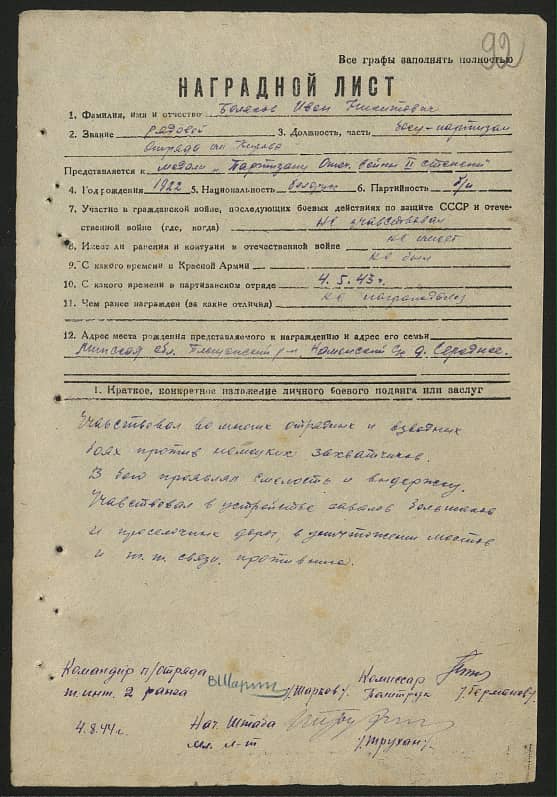 92
Все графы заполнять полностью
НАГРАДНОЙ ЛИСТ
1. Фамилия, имя и отчество Иван Никитович
2. Звание рядовой 3. Должность, часть боец-партизан
Отряда им.
Представляется к медали „Партизану Отеч. войны II степени
4. Год рождения 1922 5. Национальность 6. Партийность б/п
7. Участие в гражданской войне, последующих боевых действиях по защите СССР и отече-
ственной войне (где, когда) не учавствовал
8. Имеет ли ранения и контузии в отечественной войне не имеет
9. С какого времени в Красной Армии не был
10. С какого времени в партизанском отряде 4.5.43г.
11. Чем ранее награжден (за какие отличия) не награждался
12. Адрес места рождения представляемого к награждению и адрес его семьи
Минская обл. Плещанский р-н Каменский с/с д. Середнее.
1. Краткое, конкретное изложение личного боевого подвига или заслуг
Учавствовал во многих отрядных и взводных
боях против немецких захватчиков.
В бою проявлял смелость и выдержку.
Учавствовал в устройстве завалов большаков
и проселочных дорог, в уничтожении мостов
и т.т. связи противника.
Командир п/отряда
т. инт. 2 ранга /Шарков/.
Комиссар
/Германов/.
4.8.44г. Нач. Штаба
мл. л-т /Трухан/.